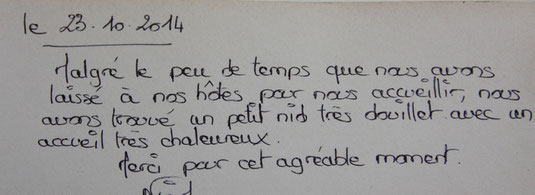 le 23.10.2014
Malgré le peu de temps que nous avons
laissé à nos hôtes pour nous accueillir, nous
avons trouvé un petit nid très douillet avec un
accueil très chaleureux.
Merci pour cet agréable moment.